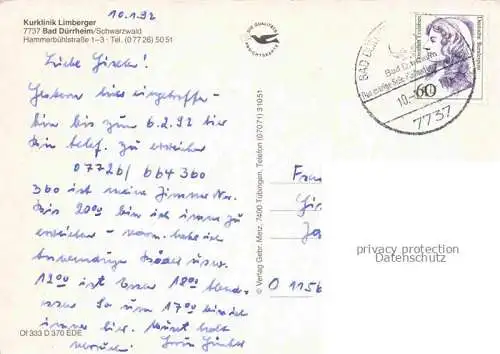 10.1.92
Kurklinik Limberger
7737 Bad Dürrheim/Schwarzwald
Hammerbühlstraße 1–3 · Tel. (07726) 5051
DIE QUALITÄTS
ANSICHTSKARTE
Liebe Gisela!
Gestern hier eingetroffe-
bin bis zum 6.2.92 hier
bin telef. zu erreichen
07726/ 664 360
360 ist meine Zimmer Nr.
bis 20°° bin ich immer zu
erreichen – vorm. habe ich
Anwendungen Bäder usw.
12°° ist Essen 18°° Abend-
essen So um 17°° bin ich
immer hier.
Of 333 D 370 EDE
© Verlag Gebr. Metz, 7400 Tübingen, Telefon (07071) 31051
BAD DÜRRHEIM
Bad Dürrheim
10.
7737
Deutsche Bundespost
60
Frau
O 1156
privacy protection
Datenschutz